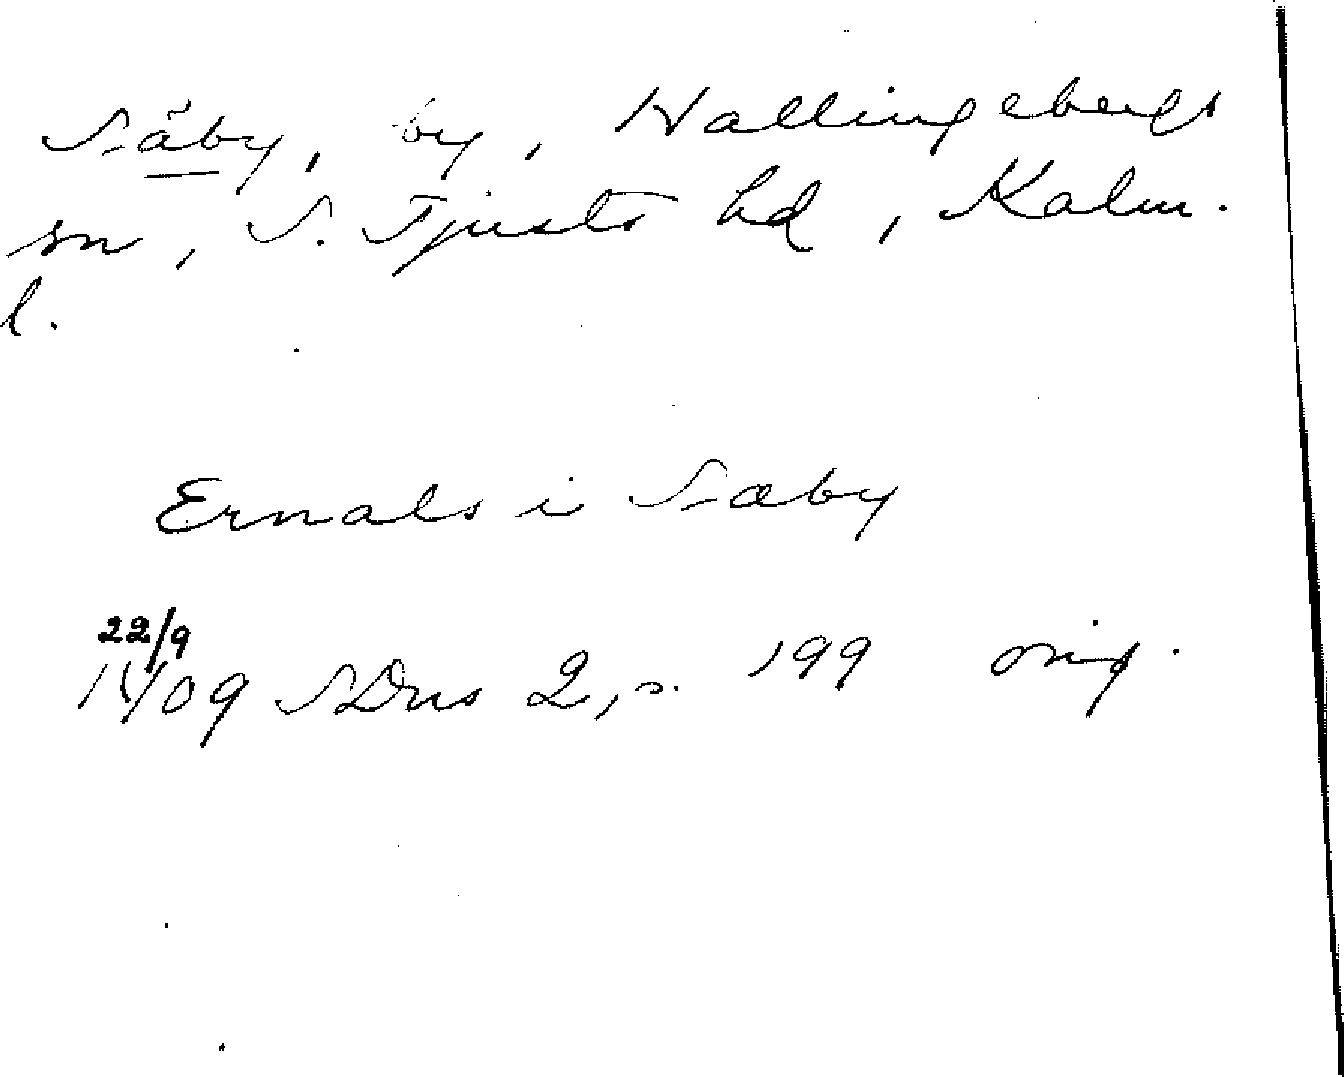 Säby, by, Hallingebergs
sn, S. Tjusts hd, Kalm.
l.
Ernals i Saby
22/9
1409 SDns 2, s. 199 orig.